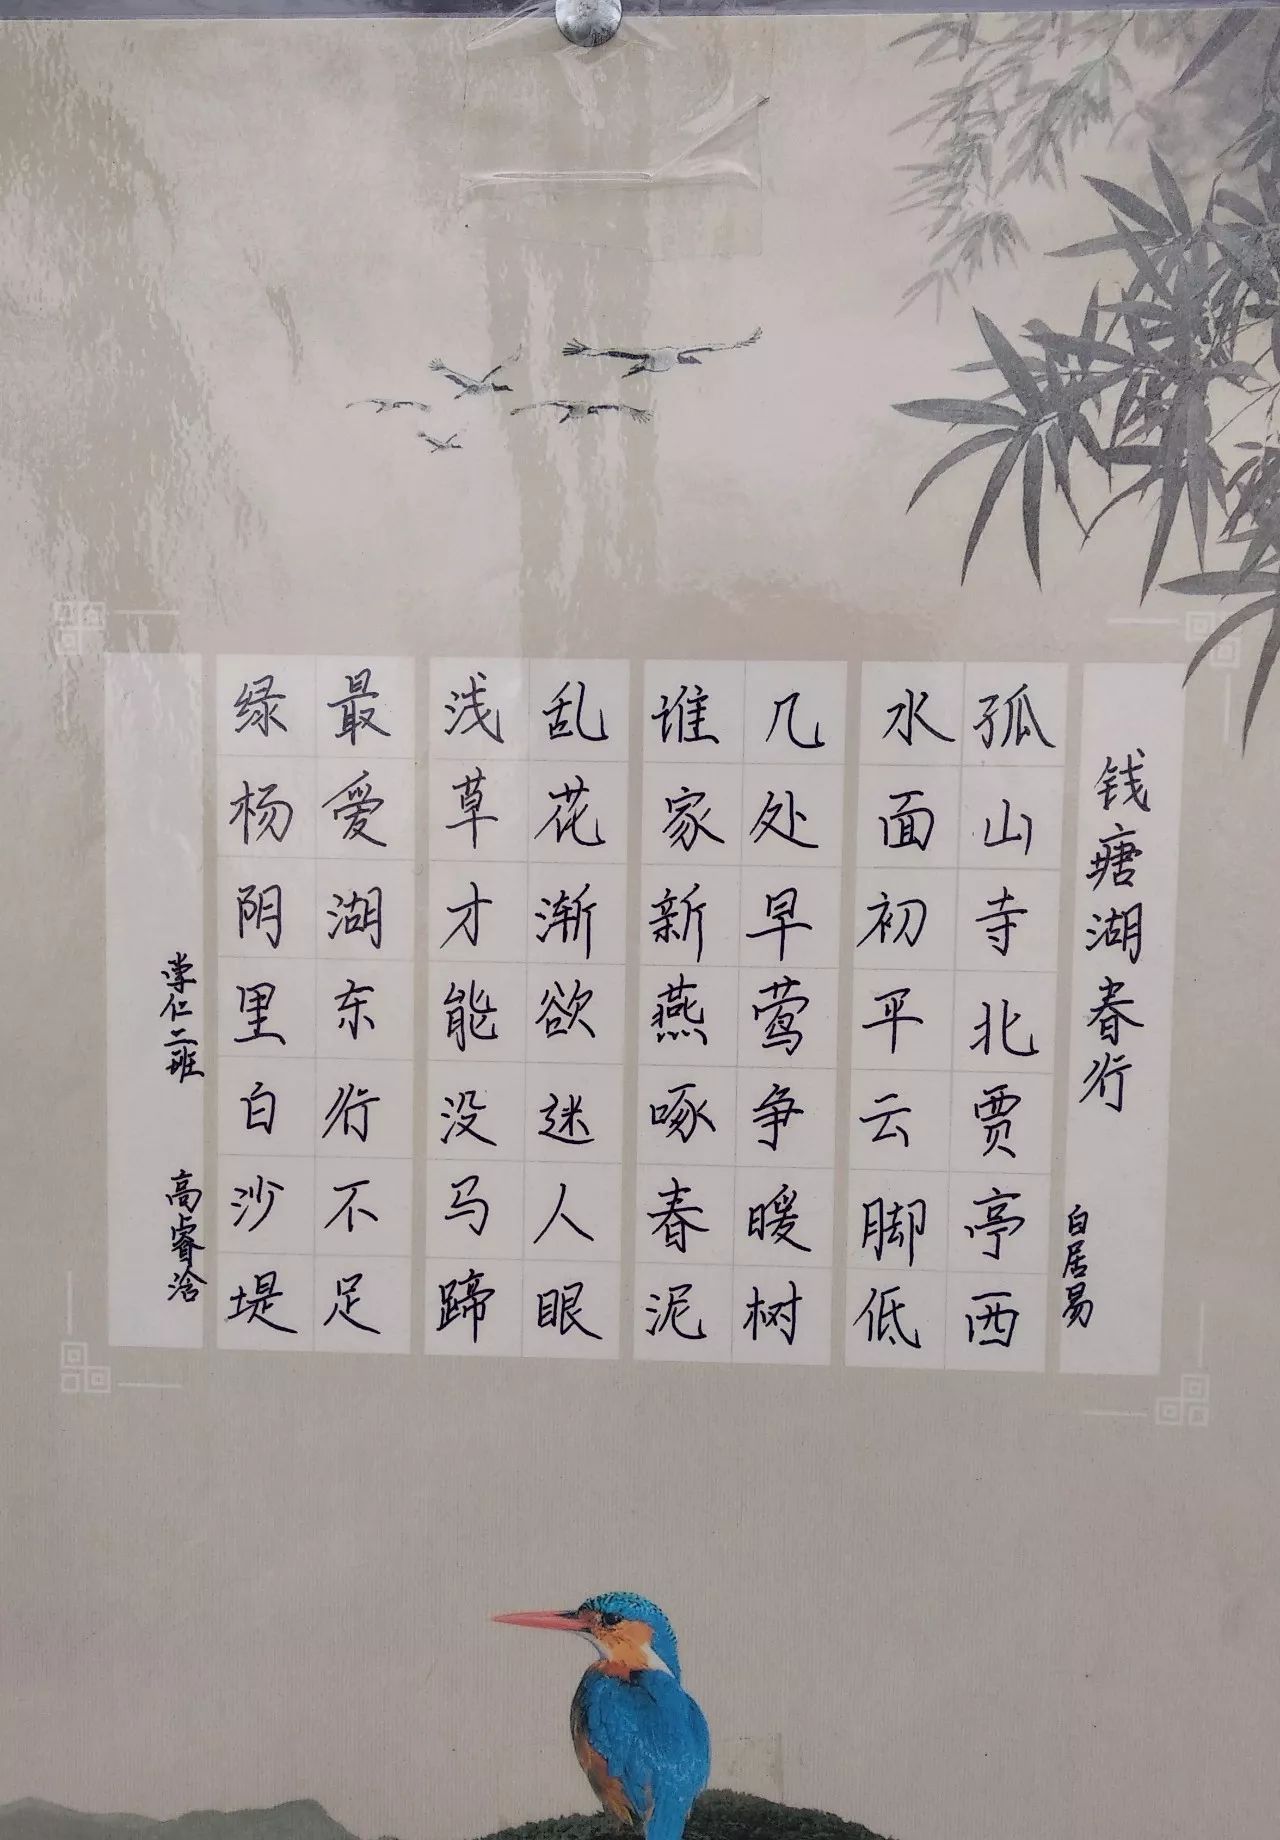 钱塘湖春行
白居易
孤山寺北贾亭西
水面初平云脚低
几处早莺争暖树
谁家新燕啄春泥
乱花渐欲迷人眼
浅草才能没马蹄
最爱湖东行不足
绿杨阴里白沙堤
学仁二班
高睿浛